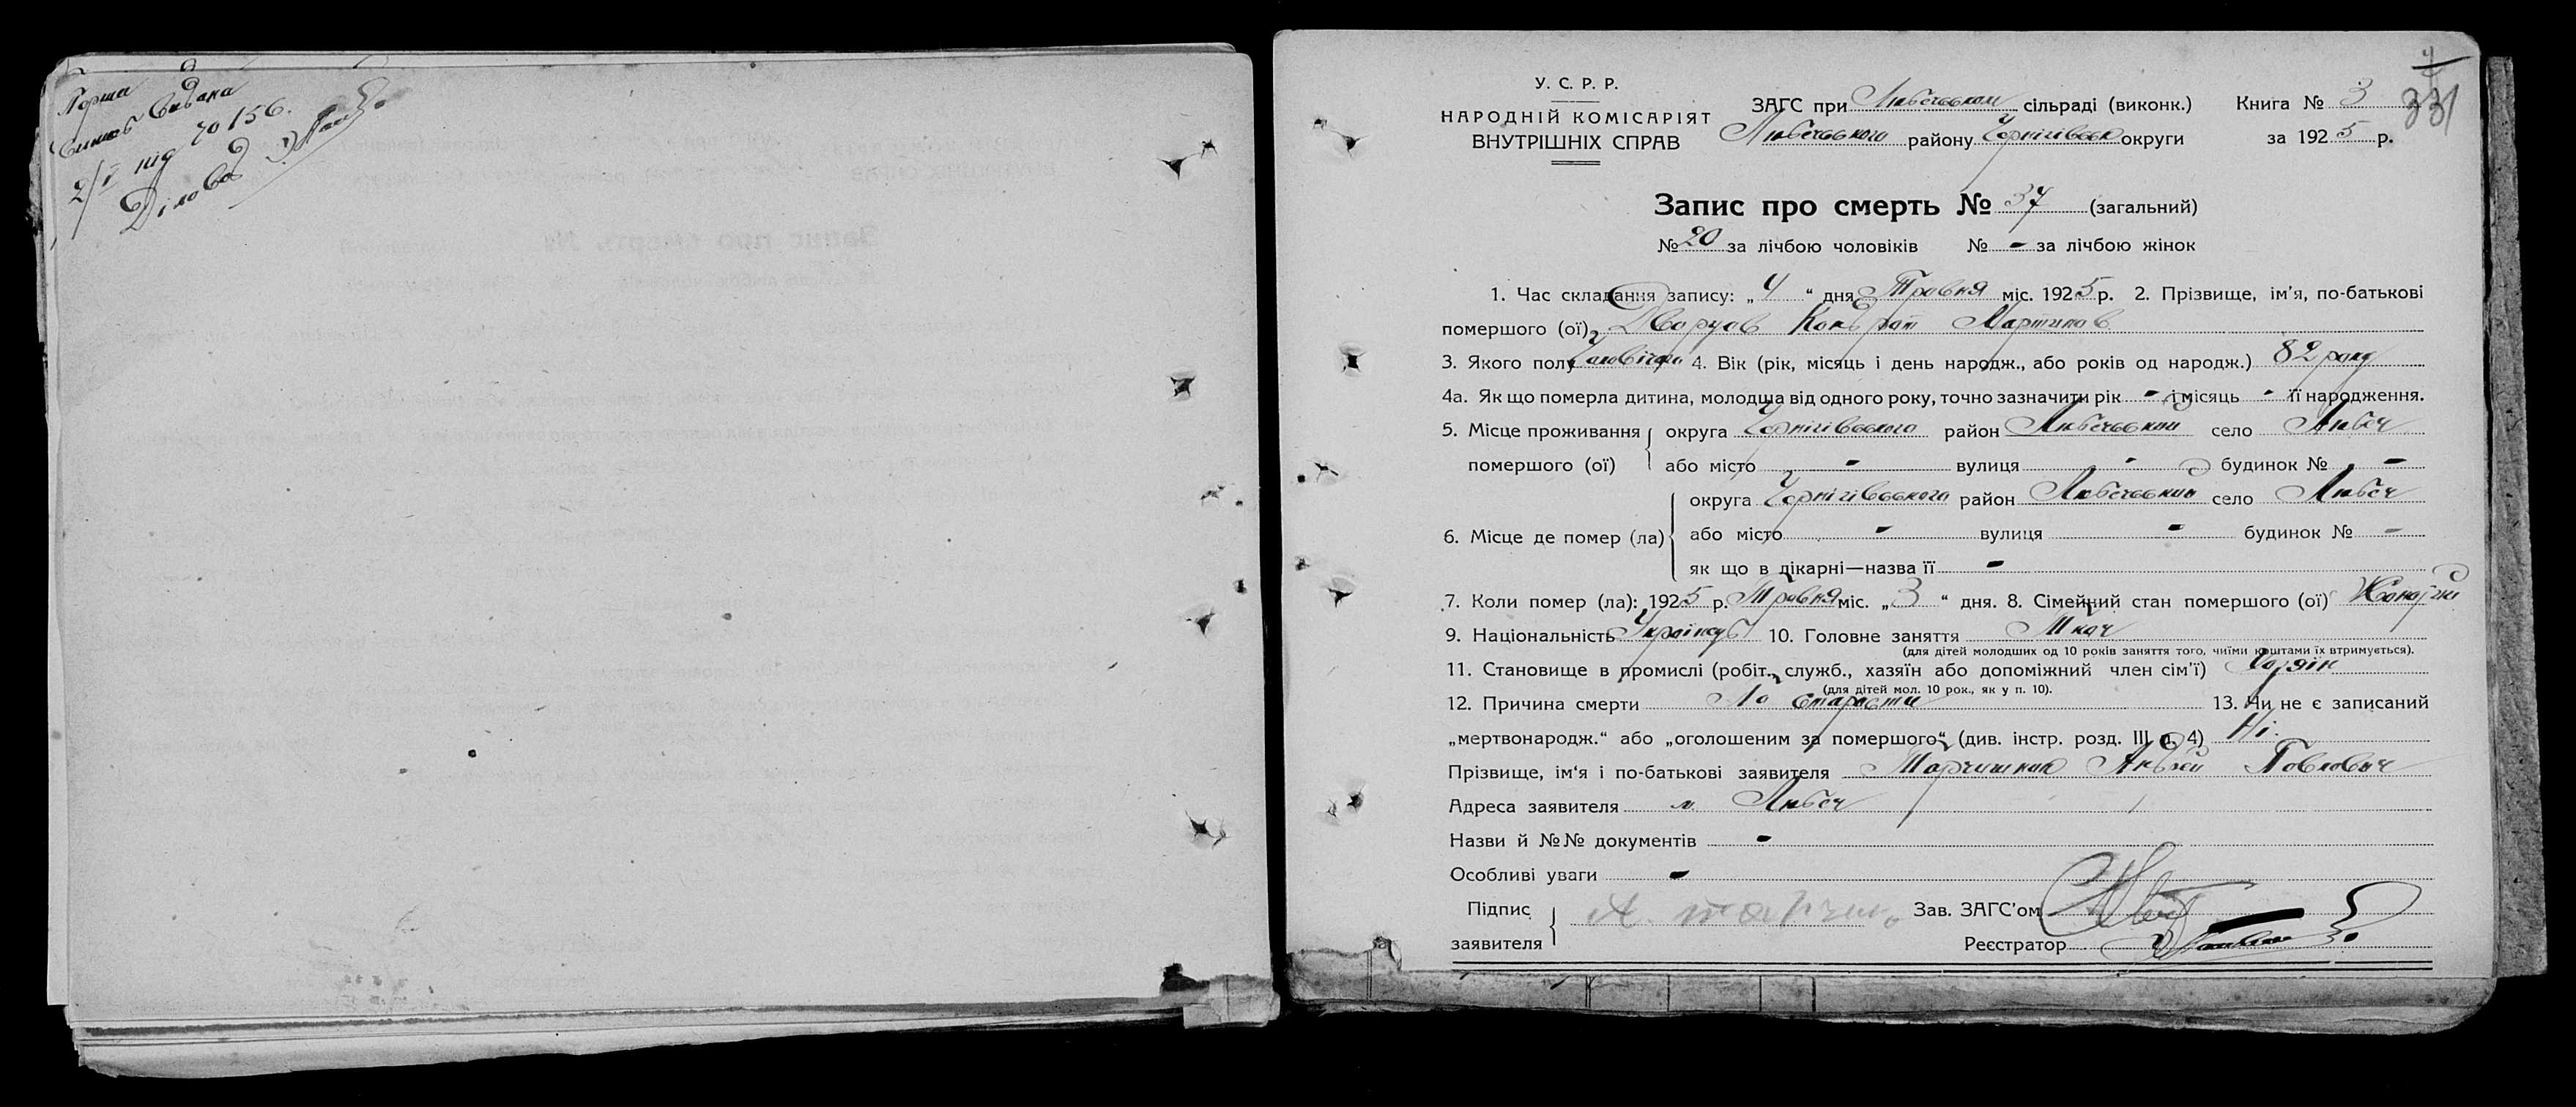 Перша
випись видана
2/V під № 156.
Діловод
У. С. Р. Р.
НАРОДНІЙ КОМІСАРІЯТ
ВНУТРІШНІХ СПРАВ
ЗАГС при Любечськом сільраді (виконк.) Книга № 3
331
Любечського району Чернігівської округи за 1925 р.
Запис про смерть № 37 (загальний)
№ 20 за лічбою чоловіків № - за лічбою жінок
1. Час складання запису: „4“ дня Травня міс. 1925 р. 2. Прізвище, ім’я, по-батькові
помершого (ої) Дворцов Кондрат Мартинов
3. Якого полу чоловічого 4. Вік (рік, місяць і день народж., або років од народж.) 82 року
4а. Як що померла дитина, молодша від одного року, точно зазначити рік - і місяць - її народження.
5. Місце проживання округа Чернігівського район Любечський село Любеч
помершого (ої) або місто - вулиця - будинок № -
округа Чернігівського район Любечський село Любеч
6. Місце де помер (ла) або місто - вулиця - будинок № -
як що в лікарні—назва її -
7. Коли помер (ла): 1925 р. Травня міс. „3“ дня. 8. Сімейний стан помершого (ої) Жонатий
9. Національність Українець 10. Головне заняття Ткач
(для дітей молодших од 10 років заняття того, чиїми коштами їх втримується).
11. Становище в промислі (робіт., служб., хазяїн або допоміжний член сім’ї) Хазяїн
(для дітей мол. 10 рох., як у п. 10).
12. Причина смерти По старости 13. Чи не є записаний
„мертвонародж.“ або „оголошеним за помершого“ (див. інстр. розд. III п. 4) Ні.
Прізвище, ім‘я і по-батькові заявителя Андрей Павлович
Адреса заявителя м Любеч
Назви й №№ документів -
Особливі уваги -
Підпис
заявителя
Зав. ЗАГС’ом
Реєстратор